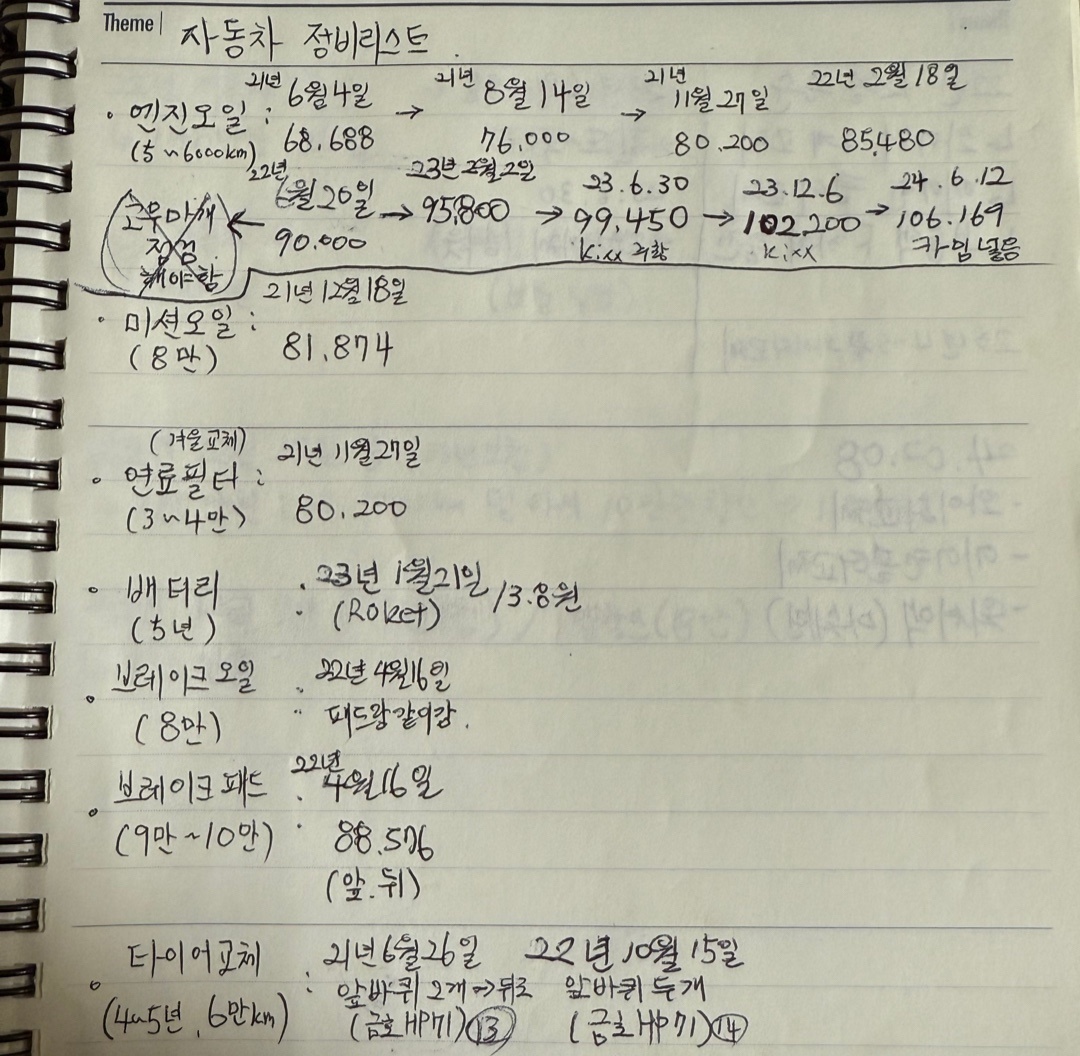 Theme | 자동차 정비리스트
21년 21년 21년 22년 2월 18일
· 엔진오일 : 6월4일 → 8월14일 → 11월27일
(5~6000km) 68.688 76.000 80.200 85,480
22년 23년 2월2일 23.6.30 23.12.6 24.6.12
고무마개 ← 6월20일 → 95,800 → 99,450 → 102,200 → 106.169
점검 90.000 Kixx Kixx
해야함
21년 12월18일
· 미션오일 :
(8만) 81.874
(겨울교체) 21년 11월27일
· 연료필터 :
(3~4만) 80.200
· 배터리 : 23년 1월21일 /13.8원
(5년) (Roket)
· 브레이크오일 : 22년 4월16일
(8만) 패드랑같이감.
22년
· 브레이크패드 : 4월16일
(9만~10만) 88.576
(앞.뒤)
타이어교체 21년6월26일 22년 10월 15일
· : 앞바퀴 2개→뒤로 앞바퀴 두개
(4~5년, 6만km) (금호HP71) 13 (금호HP71) 14